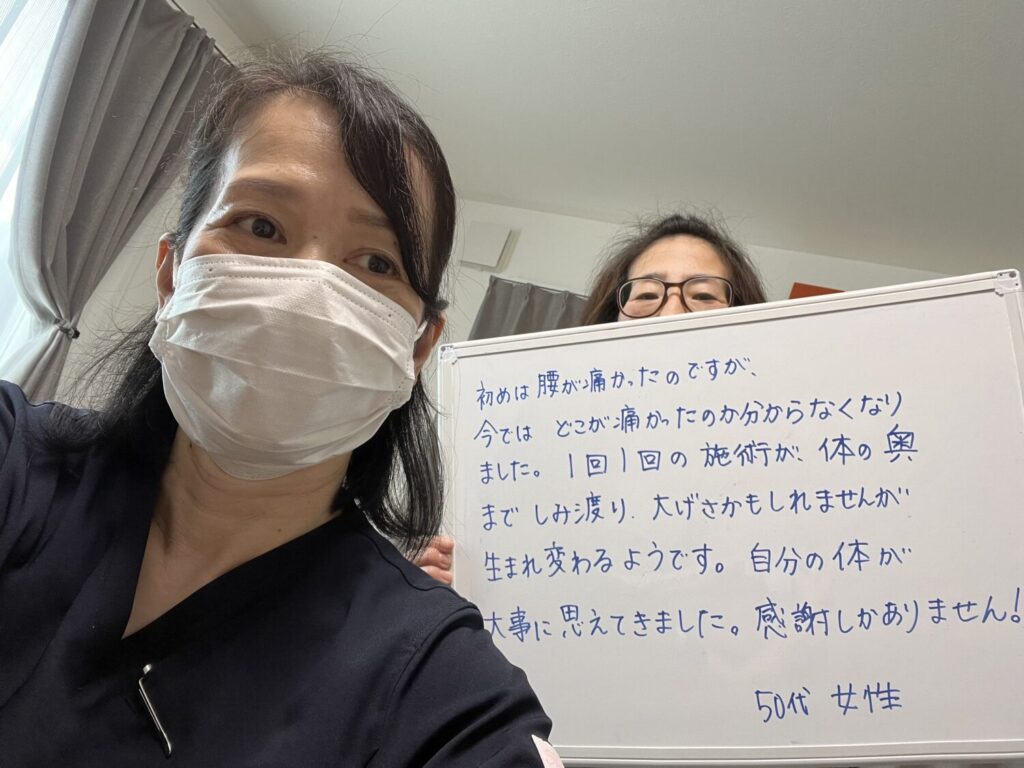 初めは腰が痛かったのですが、
今では どこが痛かったのか分からなくなり
ました。1回1回の施術が、体の奥
まで しみ渡り、大げさかもしれませんが
生まれ変わるようです。自分の体が
大事に思えてきました。感謝しかありません!
50代 女性